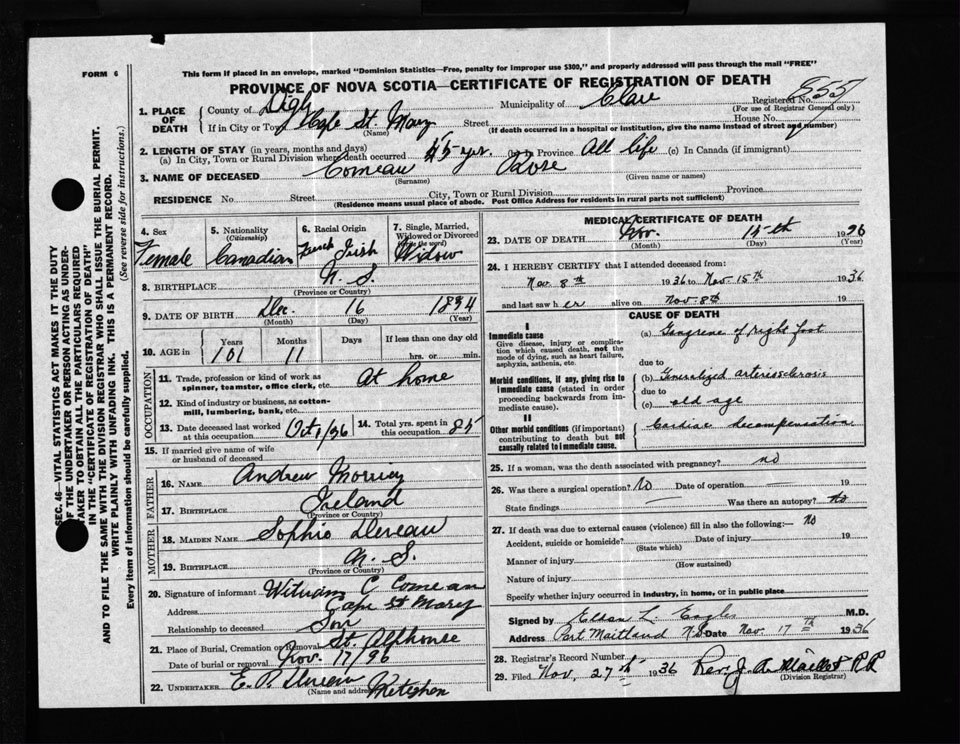 FORM 6
This form if placed in an envelope, marked "Dominion Statistics—Free, penalty for improper use $300," and properly addressed will pass through the mail "FREE"
PROVINCE OF NOVA SCOTIA—CERTIFICATE OF REGISTRATION OF DEATH
Registered No.
(For use of Registrar General only)
1. PLACE OF DEATH
County of Digby Municipality of Clare
If in City or Town St. Mary Street House No.
(Name) (If death occurred in a hospital or institution, give the name instead of street and number)
2. LENGTH OF STAY (in years, months and days)
(a) In City, Town or Rural Division where death occurred 45 yr. (b) In Province All life (c) In Canada (if immigrant)
3. NAME OF DECEASED Comeau Rose
(Surname) (Given name or names)
RESIDENCE No. Street City, Town or Rural Division Province
(Residence means usual place of abode. Post Office Address for residents in rural parts not sufficient)
4. Sex Female
5. Nationality (Citizenship) Canadian
6. Racial Origin French Irish
7. Single, Married, Widowed or Divorced (write the word) Widow
8. BIRTHPLACE N. S.
(Province or Country)
9. DATE OF BIRTH Dec. 16 1834
(Month) (Day) (Year)
10. AGE in Years Months Days If less than one day old
101 11 hrs. or min.
OCCUPATION
11. Trade, profession or kind of work as spinner, teamster, office clerk, etc. At home
12. Kind of industry or business, as cotton-mill, lumbering, bank, etc.
13. Date deceased last worked at this occupation Oct 1/36
14. Total yrs. spent in this occupation 85
15. If married give name of wife or husband of deceased
FATHER
16. NAME Andrew
17. BIRTHPLACE Ireland
(Province or Country)
MOTHER
18. MAIDEN NAME Sophie
19. BIRTHPLACE N. S.
(Province or Country)
20. Signature of informant William C Comeau
Address Cape St Mary
Relationship to deceased Son
21. Place of Burial, Cremation or Removal St. Alphonse
Date of burial or removal Nov. 17/36
22. UNDERTAKER E. P.
(Name and address)
MEDICAL CERTIFICATE OF DEATH
23. DATE OF DEATH Nov. 15th 1936
(Month) (Day) (Year)
24. I HEREBY CERTIFY that I attended deceased from:
Nov. 8th 1936 to Nov. 15th 1936
and last saw her alive on Nov. 8th 19
CAUSE OF DEATH
I
Immediate cause
Give disease, injury or complication which caused death, not the mode of dying, such as heart failure, asphyxia, asthenia, etc.
(a) Gangrene of right foot
due to
Morbid conditions, if any, giving rise to immediate cause (stated in order proceeding backwards from immediate cause).
(b) Generalized arteriosclerosis
due to
(c) old age
II
Other morbid conditions (if important) contributing to death but not causally related to immediate cause.
Cardiac decompensation
25. If a woman, was the death associated with pregnancy? no
26. Was there a surgical operation? No Date of operation — 19
State findings — Was there an autopsy? No
27. If death was due to external causes (violence) fill in also the following:— no
Accident, suicide or homicide? Date of injury 19
(State which)
Manner of injury
(How sustained)
Nature of injury
Specify whether injury occurred in industry, in home, or in public place
Signed by L. Eagles M.D.
Address Port Maitland N.S. Date Nov. 17th 1936
28. Registrar's Record Number
29. Filed Nov. 27th 1936 Rev. J. A.
(Division Registrar)
SEC. 46—VITAL STATISTICS ACT MAKES IT THE DUTY
OF THE UNDERTAKER OR PERSON ACTING AS UNDER-
TAKER TO OBTAIN ALL THE PARTICULARS REQUIRED
IN THE "CERTIFICATE OF REGISTRATION OF DEATH" AND
TO FILE THE SAME WITH THE DIVISION REGISTRAR WHO SHALL ISSUE THE BURIAL PERMIT.
WRITE PLAINLY WITH UNFADING INK. THIS IS A PERMANENT RECORD.
Every item of information should be carefully supplied. (See reverse side for instructions.)